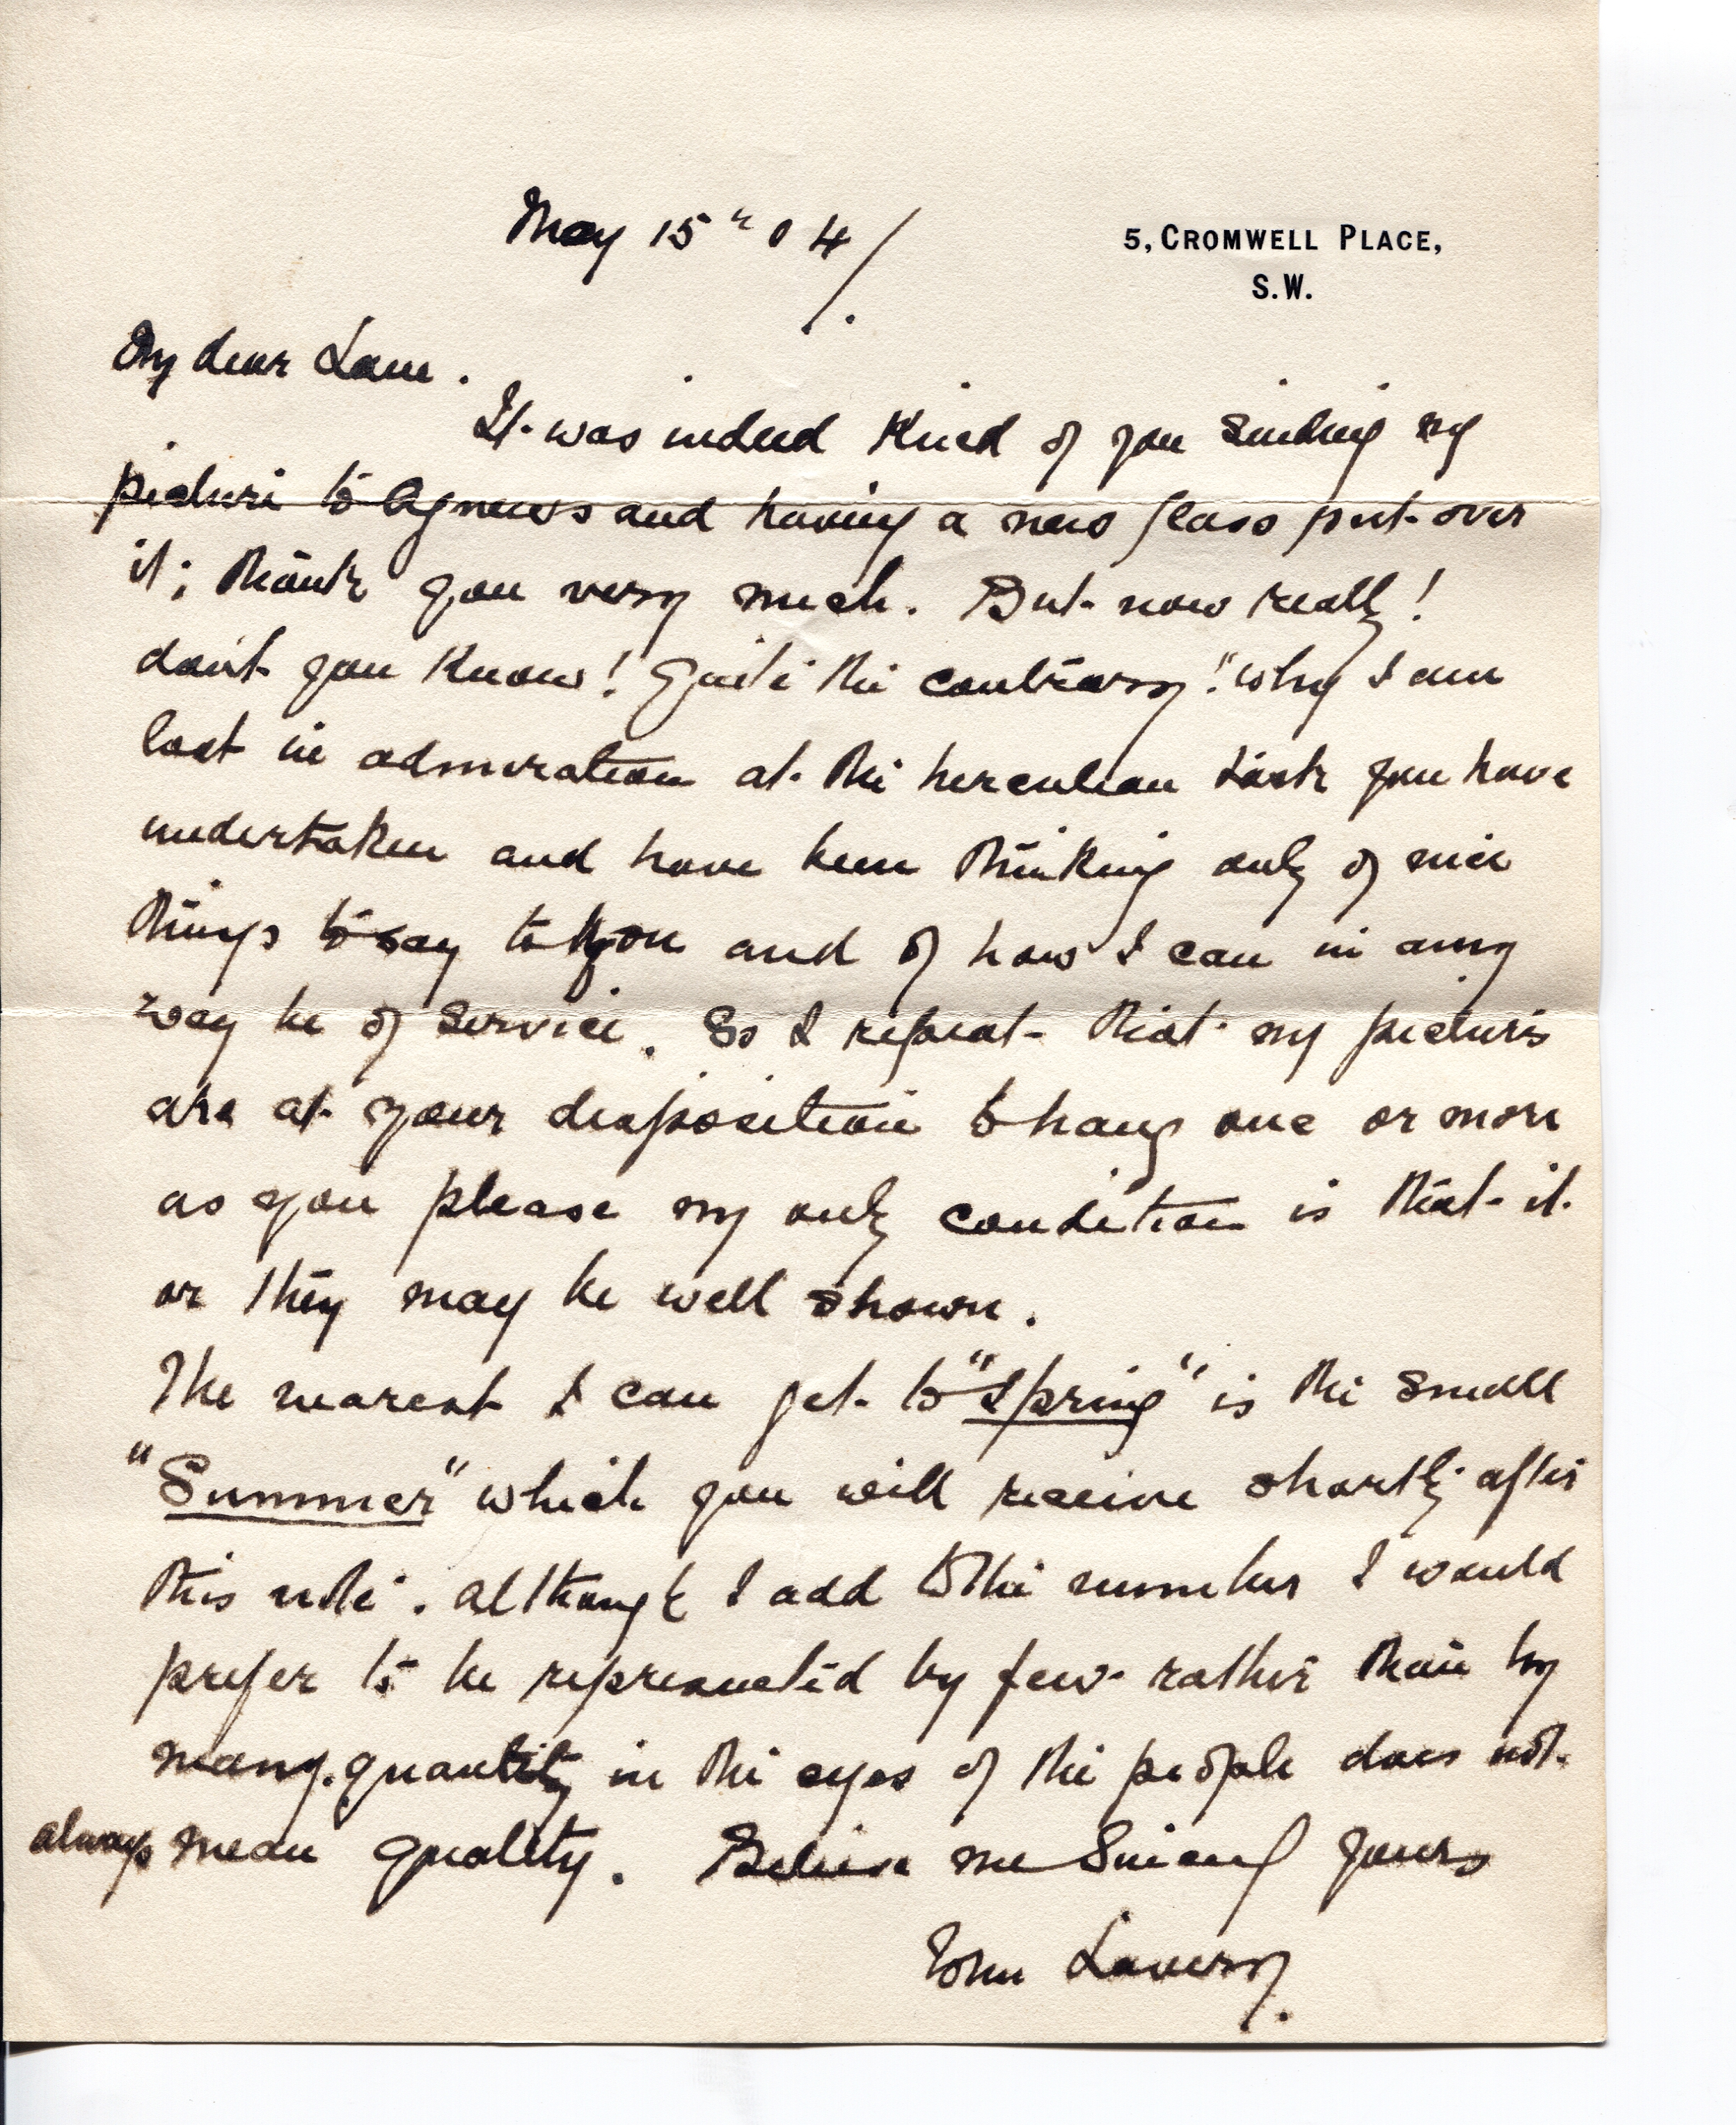 May 15th 04/.
5, CROMWELL PLACE,
S.W.
My dear Lane.
It was indeed Kind of you sending my
picture to Agnews and having a new glass put over
it; thank you very much. But now really!
don't you Know! Quite the contrary!" why I am
lost in admiration at the herculean task you have
undertaken and have been thinking only of nice
things to say to you and of how I can in any
way be of service. So I repeat that my pictures
are at your disposition to hang one or more
as you please my only condition is that it
or they may be well shown.
The nearest I can get to "Spring" is the small
"Summer" which you will receive shortly after
this note. Although I add to the number I would
prefer to be represented by few rather than by
many. quantity in the eyes of the people does not
always mean quality. Believe me Sincerely yours
John Lavery.